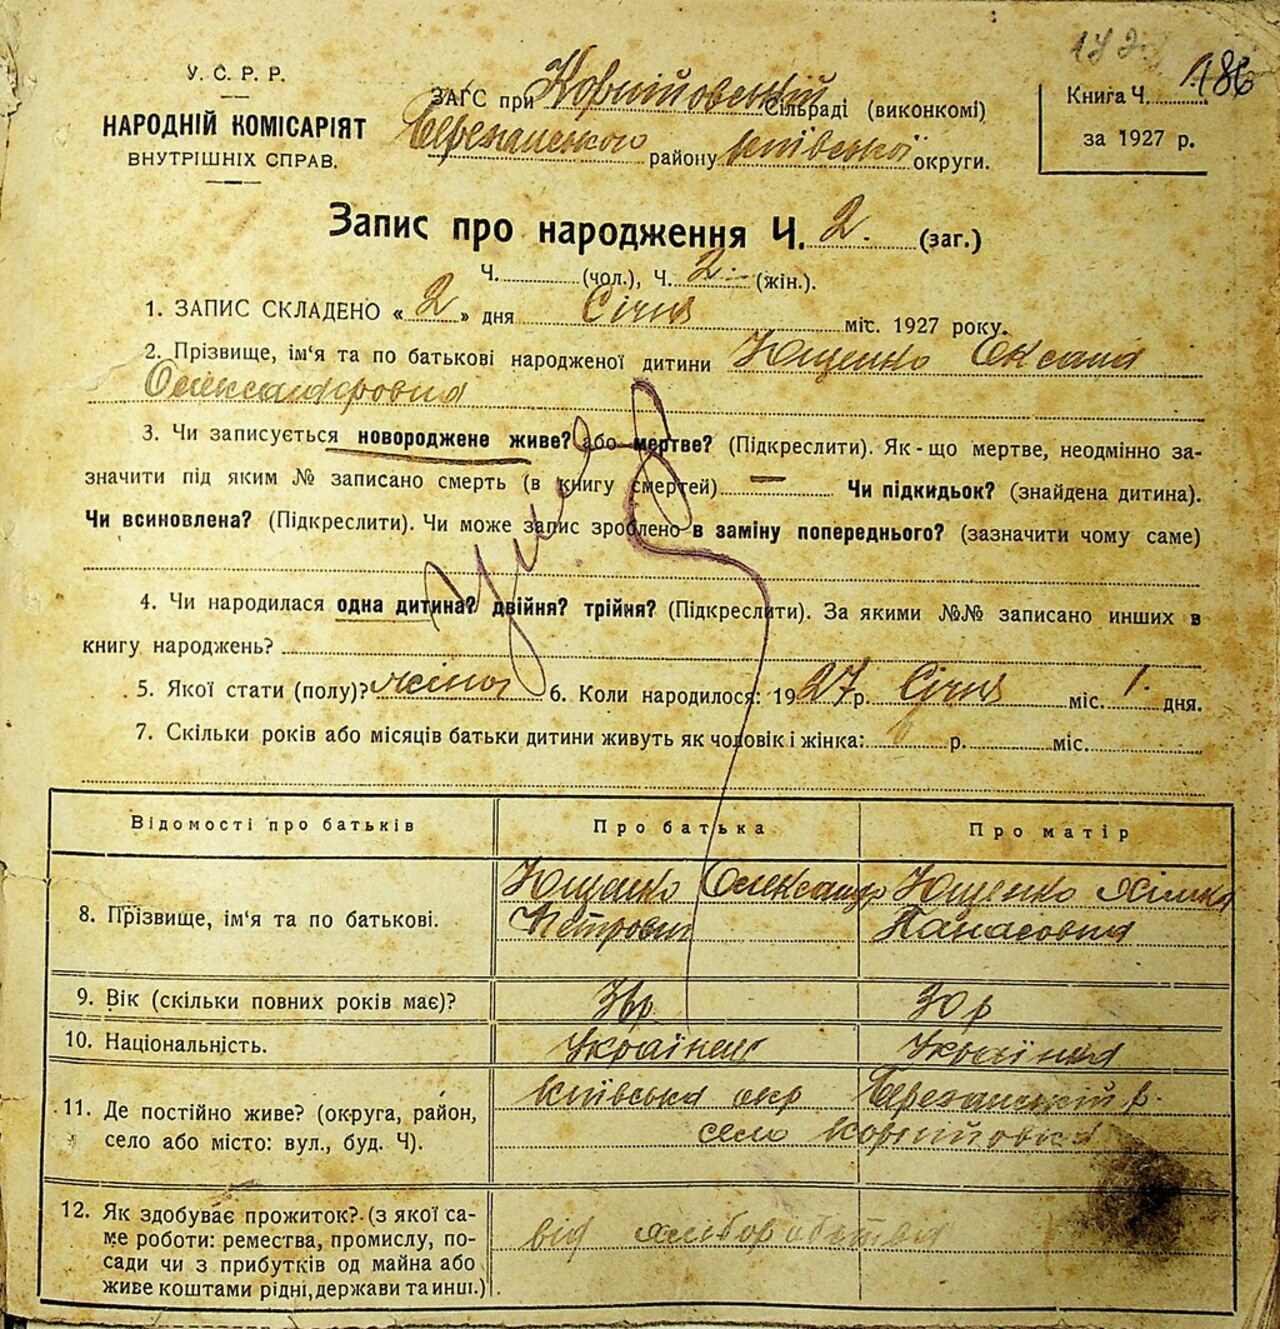 У. С. Р. Р.
НАРОДНІЙ КОМІСАРІЯТ
ВНУТРІШНІХ СПРАВ.
ЗАГС при Корніївський Сільраді (виконкомі)
Березанського району Київської округи.
186
Книга Ч.
за 1927 р.
Запис про народження Ч. 2. (заг.)
Ч. (чол.), Ч. 2 (жін.).
1. ЗАПИС СКЛАДЕНО « 2 » дня Січня міс. 1927 року.
2. Прізвище, ім'я та по батькові народженої дитини Ющенко Оксана
Олександровна
3. Чи записується новороджене живе? або мертве? (Підкреслити). Як-що мертве, неодмінно за-
значити під яким № записано смерть (в книгу смертей) — Чи підкидьок? (знайдена дитина).
Чи всиновлена? (Підкреслити). Чи може запис зроблено в заміну попереднього? (зазначити чому саме)
4. Чи народилася одна дитина? двійня? трійня? (Підкреслити). За якими №№ записано инших в
книгу народжень?
5. Якої стати (полу)? жіноч 6. Коли народилося: 1927 р. Січня міс. 1. дня.
7. Скільки років або місяців батьки дитини живуть як чоловік і жінка: р. міс.
Відомості про батьків Про батька Про матір
8. Прізвище, ім'я та по батькові.
Ющенко Олександр
Петрович
Ющенко Хімка
Панасовна
9. Вік (скільки повних років має)? 30 р
10. Національність. Українець Українка
11. Де постійно живе? (округа, район,
село або місто: вул., буд. Ч).
Київська окр Березанський р.
село Корніївка
12. Як здобуває прожиток? (з якої са-
ме роботи: ремества, промислу, по-
сади чи з прибутків од майна або
живе коштами рідні, держави та инш.)
від хліборобства